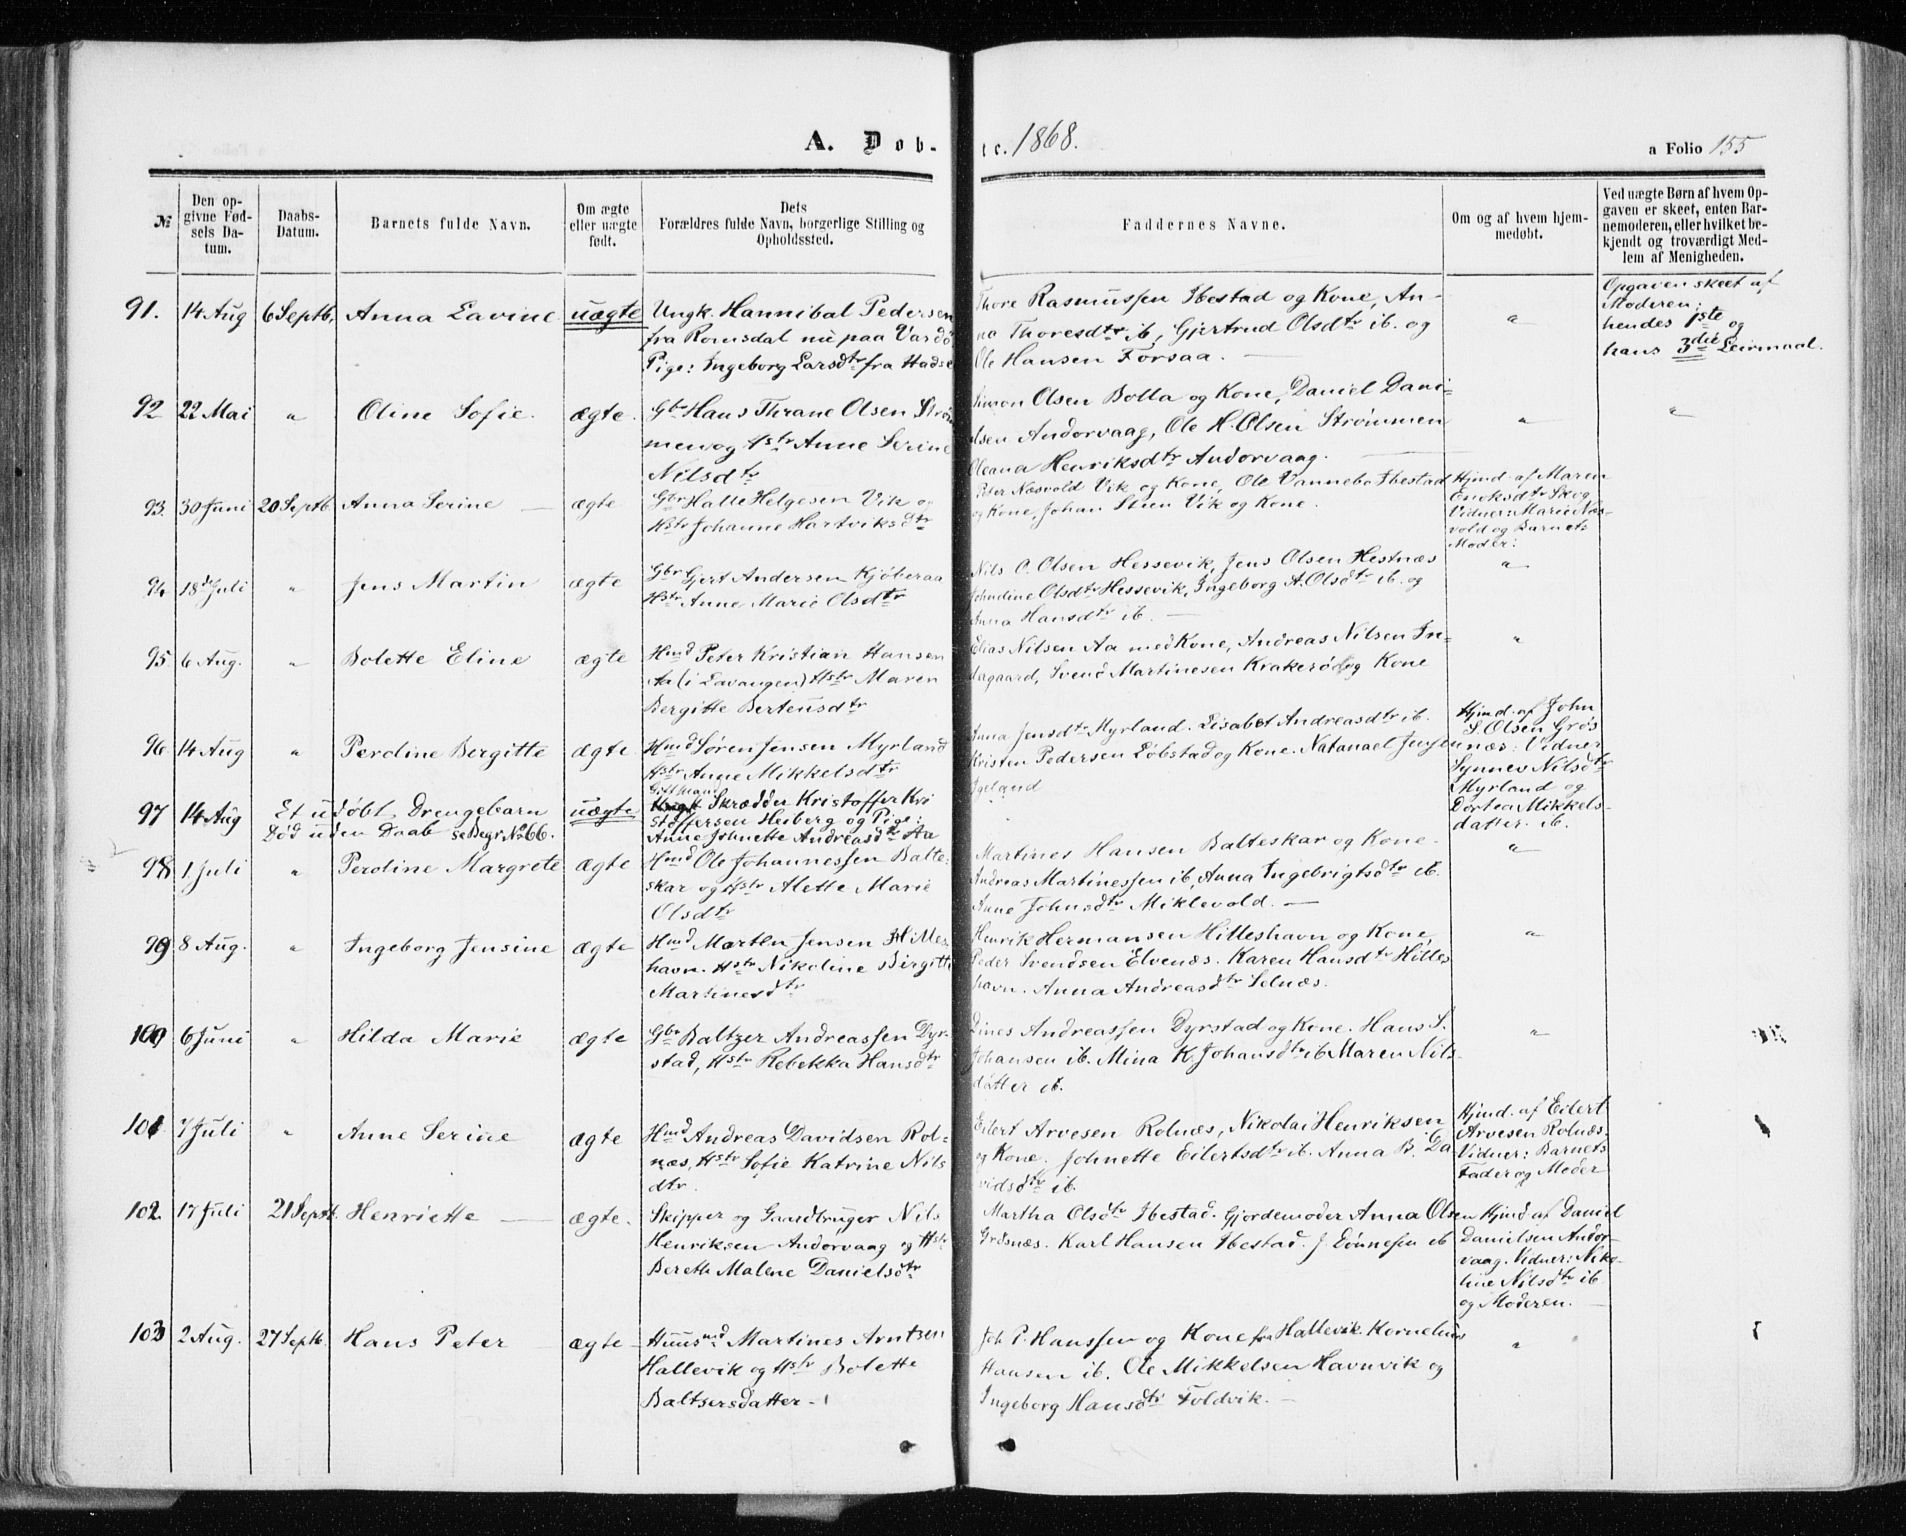 A. Dob-
te. 1868.
a Folio 155
№
Den op-
givne Fød-
sels Da-
tum.
Daabs-
Datum.
Barnets fulde Navn.
Om ægte
eller uægte
født.
Dets
Forældres fulde Navn, borgerlige Stilling og
Opholdssted.
Faddernes Navne.
Om og af hvem hjem-
medøbt.
Ved uægte Børn af hvem Op-
gaven er skeet, enten Bar-
nemoderen, eller hvilket be-
kjendt og troværdigt Med-
lem af Menigheden.
91. 14 Aug 6 Septb. Anna Lavine uægte
Ungk. Hannibal Pedersen
fra Romsdal nu paa Vardø
Pige: Ingeborg Larsdtr fra Hadsel
Thore Rasmussen Ibestad og Kone, An-
na Thoresdtr ib, Gjertrud Olsdtr ib. og
Ole Hansen Forsaa. —
"
Opgaven skeet af
Moderen:
hendes 1ste og
hans 3die Leirmaal.
92 22 Mai " Oline Sofie. ægte.
Gbr Hans Thrane Olsen Strøm
men og Hstr Anne Serine
Nilsdtr
Simon Olsen Bolla og Kone, Daniel Dani-
elsen Andorvaag, Ole H. Olsen Strømmen
Oleana Henriksdtr Andorvaag.
"
"
93. 30 Juni 20 Septb Anna Serine — ægte
Gbr Halle Helgesen Vik og
Hstr Johanne Hartviksdtr
Peter Næsvold Vik og Kone, Ole Vannebo Ibestad
og Kone, Johan Steen Vik og Kone.
Hjmd af Maren
Enoksdtr Skog
Vidner: Marie Næs-
vold og Barnets
Moder:
94 18de Juli " Jens Martin ægte
Gbr Gjert Andersen Kjøberaa
Hstr Anne Marie Olsdtr
Nils O. Olsen Hessevik, Jens Olsen Hestnæs
Johndine Olsdtr Hessevik, Ingeborg A. Olsdtr ib. og
Anna Hansdtr ib. —
"
95 6 Aug. " Bolette Eline ægte
Hmd Peter Kristian Hansen
Aa (i Lavangen) Hstr Maren
Bergitte Berteusdtr
Elias Nilsen Aa med Kone, Andreas Nilsen In-
dagaard, Svend Martinesen Krakerød og Kone
"
96 14 Aug " Perdine Bergitte ægte
Hmd Søren Jensen Myrland
Hstr Anne Mikkelsdtr
Anna Jensdtr Myrland. Lisabet Andreasdtr ib.
Kristen Pedersen Løbstad og Kone. Natanael Jensen
Igeland
Hjmd. af John
S. Olsen Grøs
næs: Vidner
Synnev Nilsdtr
Myrland og
Dortea Mikkels-
datter. ib.
97 14 Aug Et udøbt Drengebarn
Død uden Daab se Begr. No 66.
uægte
Gift Mand
Skrædder Kristoffer Kri
stoffersen Heiberg og Pige:
Anne Johnette Andreasdtr Aa
98 1 Juli " Peroline Margrete ægte
Hmd Ole Johannessen Balte-
skar og Hstr Alette Marie
Olsdtr
Martines Hansen Balteskar og Kone.
Andreas Martinessen ib, Anna Ingebrigtsdtr ib.
Anne Johnsdtr Miklevold. —
"
99 8 Aug. " Ingeborg Jensine ægte
Hmd Morten Jensen Hilles-
havn. Hstr Nikoline Birgitte
Martinesdtr
Henrik Hermansen Hilleshavn og Kone,
Peder Svendsen Elvenæs. Karen Hansdtr Hilles
havn. Anna Andreasdtr Selnæs.
"
100 6 Juni " Hilda Marie ægte
Gbr Baltzer Andreassen Dyr-
stad, Hstr Rebekka Hansdtr
Dines Andreassen Dyrstad og Kone. Hans S.
Johansen ib. Mina K. Johansdtr ib Maren Nils-
datter ib.
"
101 7 Juli " Anne Serine ægte
Hmd Andreas Davidsen Rol-
næs, Hstr Sofie Katrine Nils
dtr.
Eilert Arvesen Rolnæs, Nikolai Henriksen
og Kone. Johnette Eilertsdtr ib. Anna B. Da
vidsdtr ib.
Hjmd. af Eilert
Arvesen Rolnæs.
Vidner: Barnets
Fader og Moder
102. 17 Juli 21 Septb. Henriette — ægte.
Skipper og Gaardbruger Nils
Henriksen Andorvaag og Hstr
Berethe Malene Danielsdtr
Martha Olsdtr Ibestad. Gjordemoder Anna Olsen
Grøsnæs. Karl Hansen Ibestad. J. Lønnesen ib
Hjmd af Daniel
Danielsen Andor-
vaag. Vidner: Niko-
line Nilsdtr ib.
og Moderen. —
103 2 Aug. 27 Septb. Hans Peter ægte
Huusmd Martines Arntsen
Hallevik og Hstr Bolette
Baltsersdatter -
Joh P. Hanssen og Kone fra Hallevik. Kornelius
Hansen ib. Ole Mikkelsen Havnvik og
Ingeborg Hansdtr Foldvik. —
"